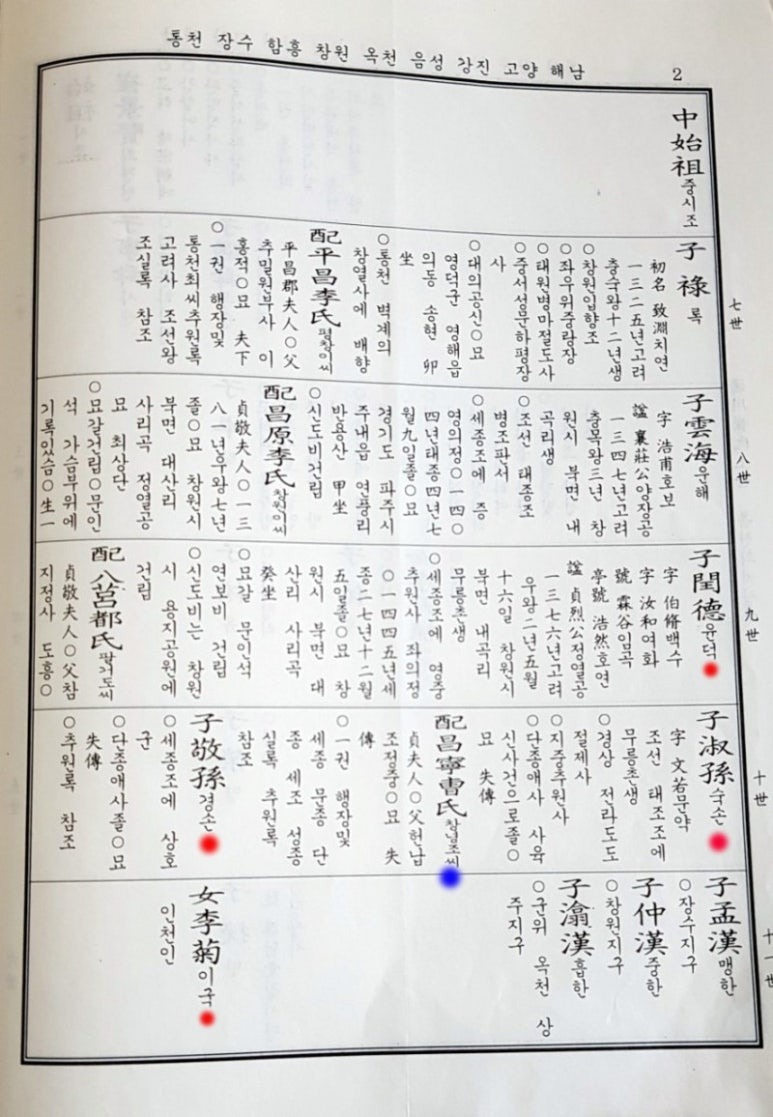 통천 장수 함흥 창원 옥천 음성 강진 고양 해남
2
中始祖 중시조
七世
子 祿 록
初名 致淵치연
一三二五년고려
충숙왕十二년생
○창원입향조
○좌우위중랑장
○태원병마절도사
○중서성문하평장
사
○대의공신○묘
영덕군 영해읍
의동 송현 卯
坐
○통천 벽계의
창열사에 배향
配平昌李氏평창이씨
平昌郡夫人○父
추밀원부사 이
홍적○묘 夫下
○一권 행장및
통천최씨추원록
고려사 조선왕
조실록 참조
八世
子雲海운해
字 浩甫호보
諡 襄莊公양장공
一三四七년고려
충목왕三년 창
원시 북면 내
곡리생
○조선 태종조
병조판서
○세종조에 증
영의정○一四○
四년태종四년七
월九일졸○묘
경기도 파주시
주내읍 연풍리
반용산 甲坐
○신도비건립
配昌原李氏창원이씨
貞敬夫人○一三
八一년우왕七년
졸○묘 창원시
북면 대산리
사리곡 정열공
묘 최상단
○묘갈건립○문인
석 가슴부위에
기록있슴○生一
九世
子閏德윤덕
字 伯脩백수
字 汝和여화
號 霖谷임곡
亭號 浩然호연
諡 貞烈公정열공
一三七六년고려
우왕二년五월
十六일 창원시
북면 내곡리
무릉촌생
○세종조에 영중
추원사 좌의정
○一四四五년세
종二七년十二월
五일졸○묘 창
원시 북면 대
산리 사리곡
癸坐
○묘갈 문인석
연보비 건립
○신도비는 창원
시 용지공원에
건립
配八莒都氏팔거도씨
貞敬夫人○父참
지정사 도흥○
十世
子淑孫숙손
字 文若문약
조선 태조조에
무릉촌생
○경상 전라도도
절제사
○지중추원사
○단종애사 사육
신사건으로졸○
묘 失傳
配昌寧曺氏창녕조씨
貞夫人○父헌납
조정중○묘 失
傳
○一권 행장및
세종 문종 단
종 세조 성종
실록 추원록
참조
子敬孫경손
○세종조에 상호
군
○단종애사졸○묘
失傳
○추원록 참조
十一世
子孟漢맹한
○장수지구
子仲漢중한
○창원지구
子滃漢흡한
○군위 옥천 상
주지구
女李菊이국
인천인